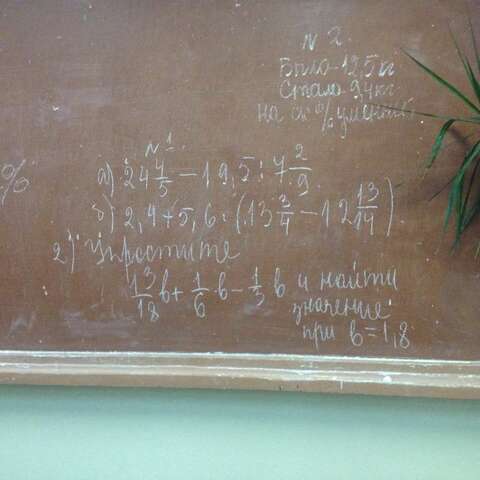 N 2.
Было - 12,5 кг
Стало 9,4 кг
на ск % уменьш
%
N 1.
а) 24 4/5 - 19,5 : 7 2/9
б) 2,4 + 5,6 : (13 3/4 - 12 13/14)
2) Упростите
13/18 в + 1/6 в - 1/3 в и найти
значение
при в = 1,8